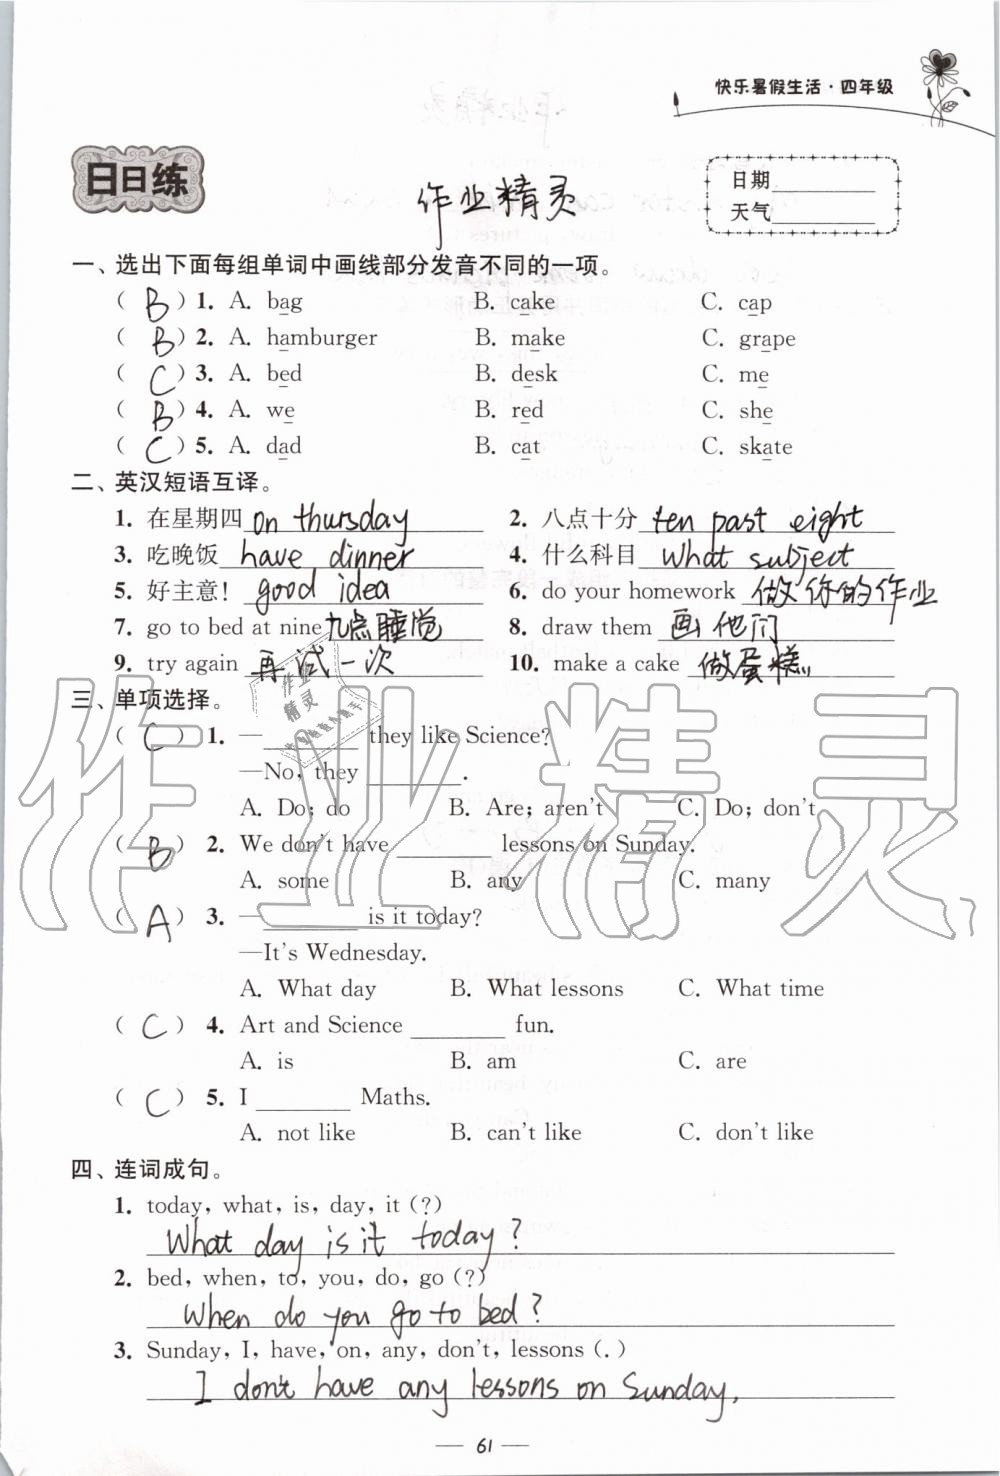 快乐暑假生活·四年级
日日练
作业精灵
日期
天气
一、选出下面每组单词中画线部分发音不同的一项。
( B )1. A. bag B. cake C. cap
( B )2. A. hamburger B. make C. grape
( C )3. A. bed B. desk C. me
( B )4. A. we B. red C. she
( C )5. A. dad B. cat C. skate
二、英汉短语互译。
1. 在星期四 on thursday 2. 八点十分 ten past eight
3. 吃晚饭 have dinner 4. 什么科目 what subject
5. 好主意! good idea 6. do your homework 做你的作业
7. go to bed at nine 九点睡觉 8. draw them 画他们
9. try again 再试一次 10. make a cake 做蛋糕
三、单项选择。
( C ) 1. —________ they like Science?
—No, they ________.
A. Do; do B. Are; aren't C. Do; don't
( B ) 2. We don't have ________ lessons on Sunday.
A. some B. any C. many
( A ) 3. —________ is it today?
—It's Wednesday.
A. What day B. What lessons C. What time
( C ) 4. Art and Science ________ fun.
A. is B. am C. are
( C ) 5. I ________ Maths.
A. not like B. can't like C. don't like
四、连词成句。
1. today, what, is, day, it (?)
What day is it today?
2. bed, when, to, you, do, go (?)
When do you go to bed?
3. Sunday, I, have, on, any, don't, lessons (.)
I don't have any lessons on Sunday.
— 61 —
作业精灵
作业
精灵